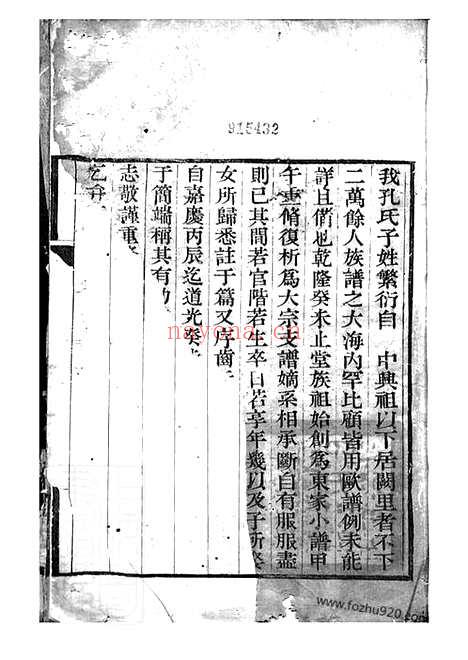 915432
我孔氏子姓繁衍自 中興祖以下居闕里者不下
二萬餘人族譜之大海内罕比顧皆用歐譜例未能
詳且備也乾隆癸未止堂族祖始創爲東家小譜甲
午重脩復析爲大宗支譜嫡系相承斷自有服服盡
則已其間若官階若生卒日若享年幾以及子所娶
女所歸悉註于篇又序齒
自嘉慶丙辰迄道光癸
于簡端稱其有功
志敬謹重
nayona.cn
www.fozhu920.com